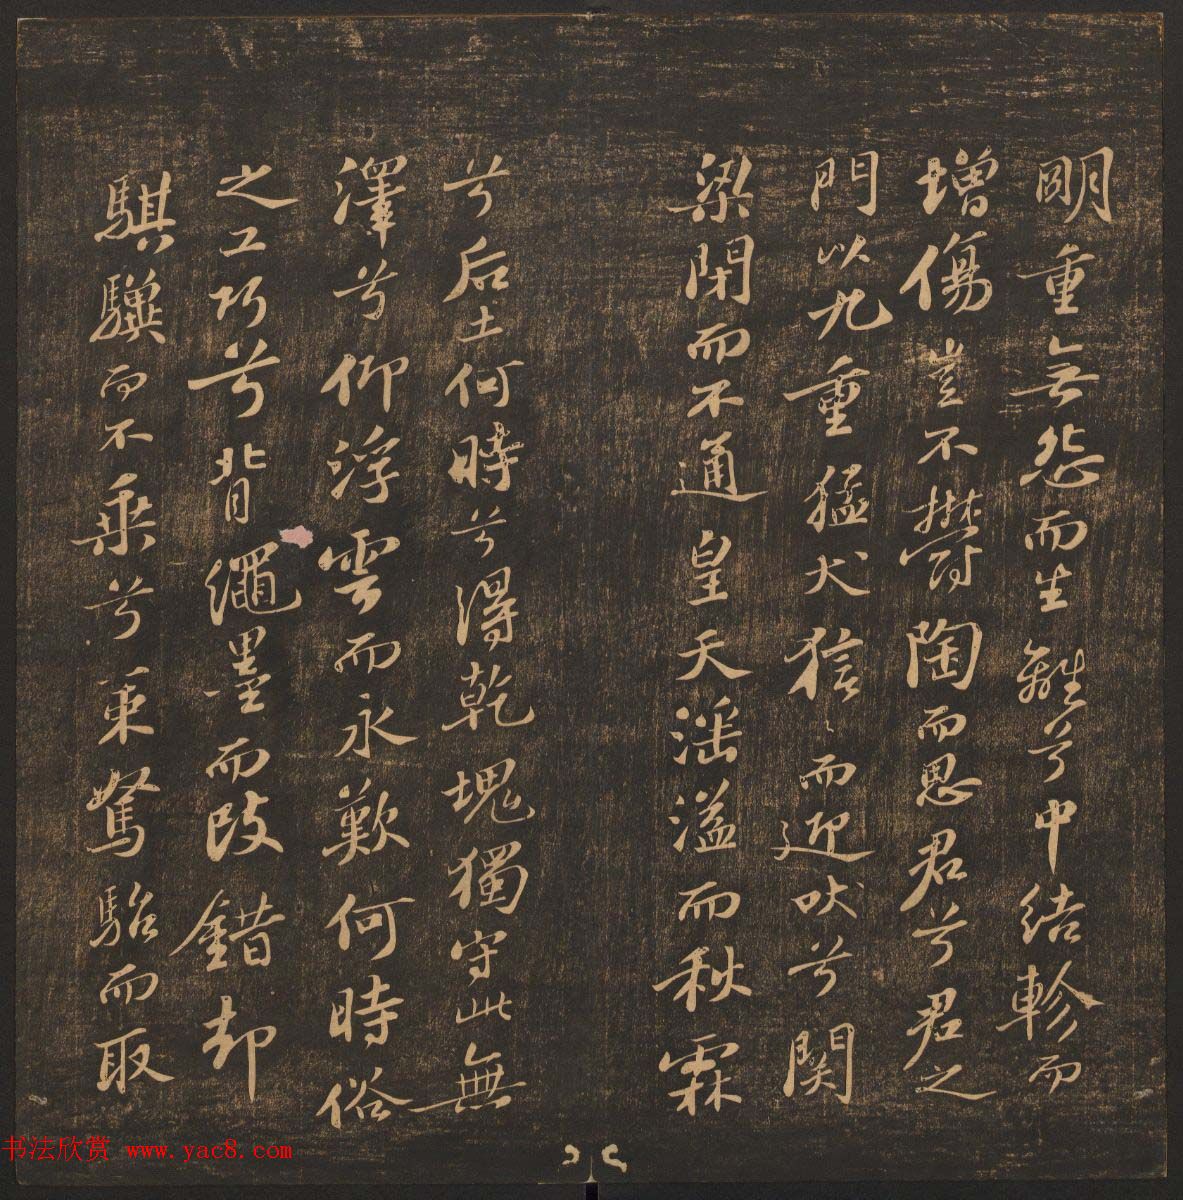 明重無怨而生離兮中結軫而
增傷豈不鬱陶而思君兮君之
門以九重猛犬狺〻而迎吠兮關
梁閉而不通皇天淫溢而秋霖
兮后土何時兮得乾塊獨守此無
澤兮仰浮雲而永歎何時俗
之工巧兮背繩墨而改錯却
騏驥而不乘兮策駑駘而取
书法欣赏 www.yac8.com